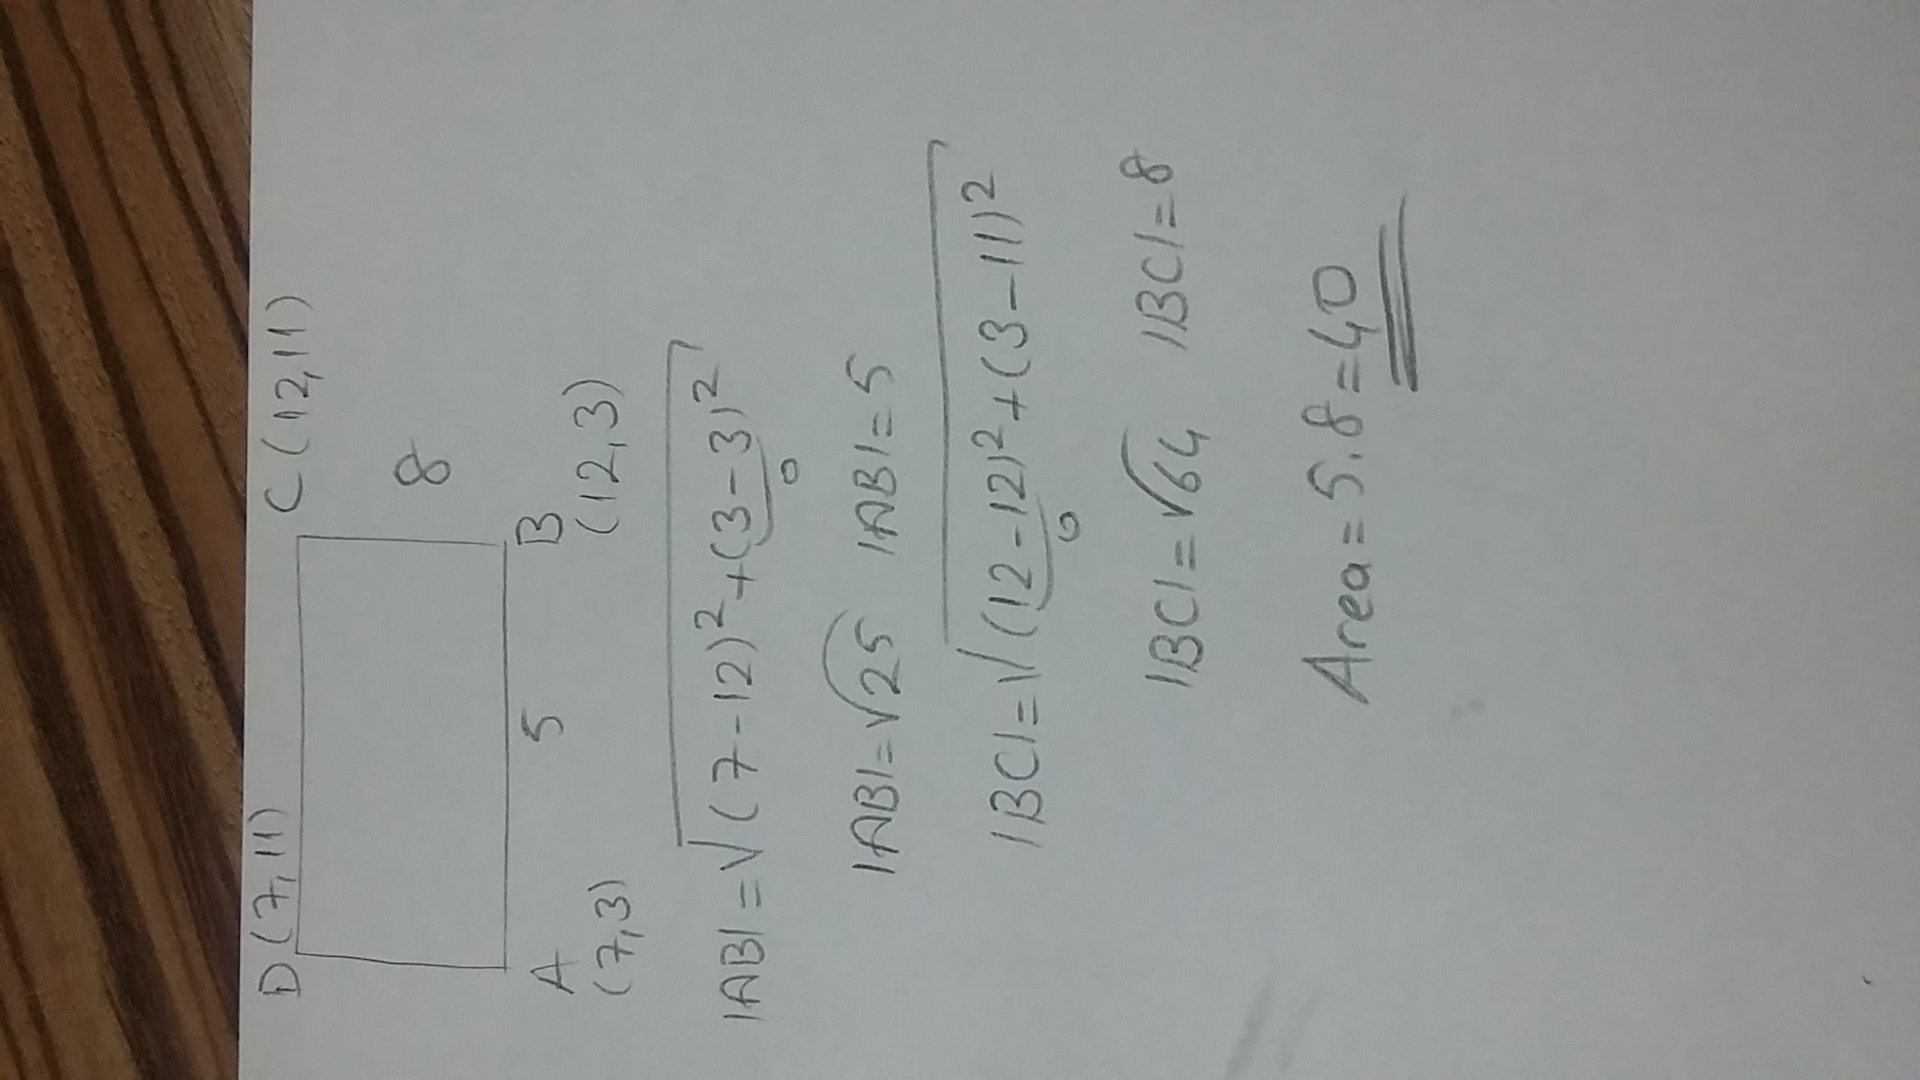 D(7,11) C(12,11)
8
A 5 B
(7,3) (12,3)
|AB|=√(7-12)²+(3-3)²
0
|AB|=√25 |AB|=5
|BC|=√(12-12)²+(3-11)²
0
|BC|=√64 |BC|=8
Area=5.8=40